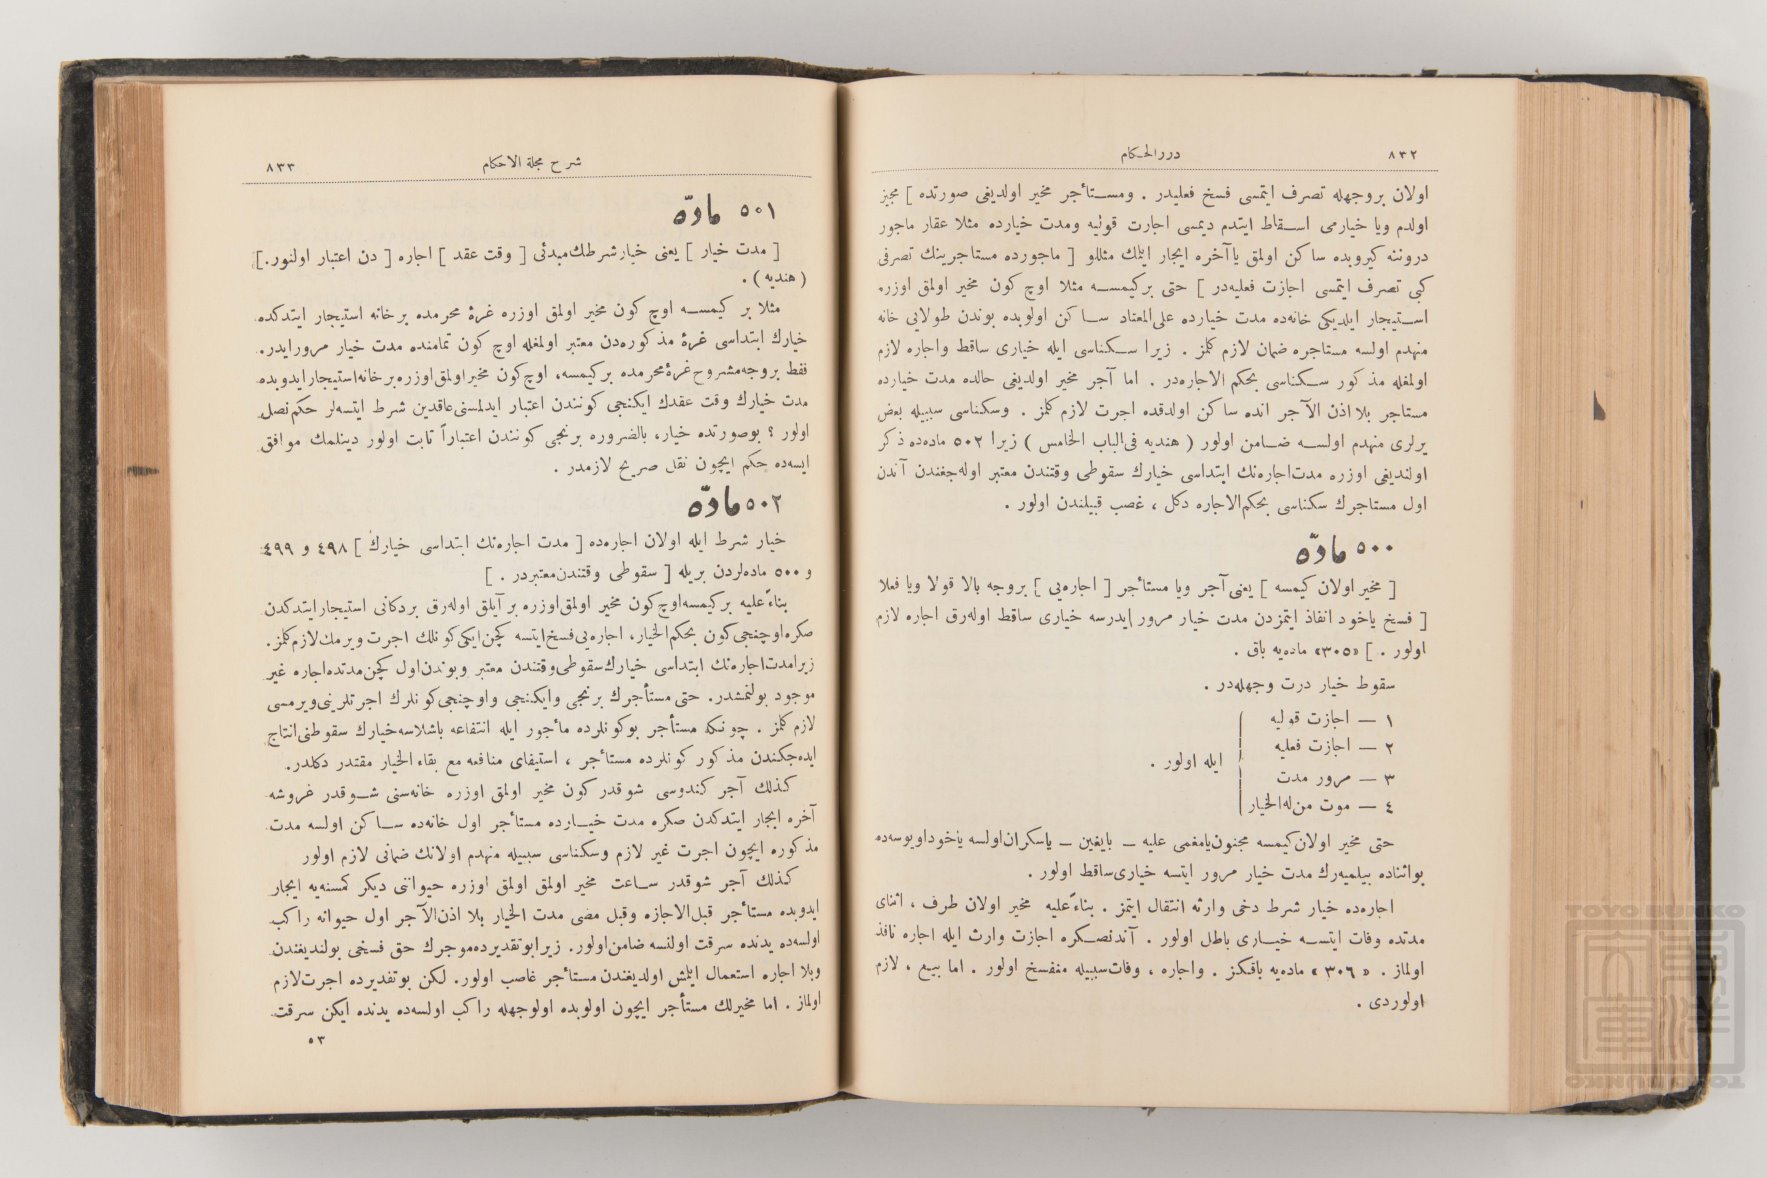 ٨٣٢
دررالحكام
اولان بروجهله تصرف ایتمسی فسخ فعلیدر . ومستأجر مخیر اولدیغی صورتده ] مجیز
اولدم ویا خیارمی اسقاط ایتدم دیمسی اجازت قولیه ومدت خیارده مثلا عقار ماجور
دروننه كیروبده ساكن اولمق یاآخره ایجار ایتمك مثللو [ ماجورده مستاجرینك تصرفی
كبی تصرف ایتمسی اجازت فعلیه‌در ] حتی بركیمسه مثلا اوچ كون مخیر اولمق اوزره
استیجار ایلدیكی خانه‌ده مدت خیارده علی‌المعتاد ساكن اولوبده بوندن طولایی خانه
منهدم اولسه مستاجره ضمان لازم كلمز . زیرا سكناسی ایله خیاری ساقط واجاره لازم
اولمغله مذكور سكناسی بحكم الاجاره‌در . اما آجر مخیر اولدیغی حالده مدت خیارده
مستاجر بلا اذن الآجر انده ساكن اولدقده اجرت لازم كلمز . وسكناسی سببیله بعض
یرلری منهدم اولسه ضامن اولور ( هندیه فی‌الباب الخامس ) زیرا ٥٠٢ ماده‌ده ذكر
اولندیغی اوزره مدت‌اجاره‌نك ابتداسی خیارك سقوطی وقتندن معتبر اوله‌جغندن آندن
اول مستاجرك سكناسی بحكم‌الاجاره دكل ، غصب قبیلندن اولور .
٥٠٠ مادّه
[ مخیر اولان كیمسه ] یعنی آجر ویا مستأجر [ اجاره‌یی ] بروجه بالا قولا ویا فعلا
[ فسخ یاخود انفاذ ایتمزدن مدت خیار مرور ایدرسه خیاری ساقط اوله‌رق اجاره لازم
اولور . ] «٣٠٥» ماده‌یه باق .
سقوط خیار درت وجهله‌در .
١ — اجازت قولیه
٢ — اجازت فعلیه
٣ — مرور مدت
٤ — موت من‌له‌الخیار
ایله اولور .
حتی مخیر اولان‌كیمسه مجنون‌یامغمی علیه — بایغین — یاسكران‌اولسه یاخوداویوسه‌ده
بواثناده بیلمیه‌رك مدت خیار مرور ایتسه خیاری‌ساقط اولور .
اجاره‌ده خیار شرط دخی وارثه انتقال ایتمز . بناءً‌علیه مخیر اولان طرف ، اثنای
مدتده وفات ایتسه خیاری باطل اولور . آندنصكره اجازت وارث ایله اجاره نافذ
اولماز . « ٣٠٦ » ماده‌یه باقكز . واجاره ، وفات‌سببیله منفسخ اولور . اما بیع ، لازم
اولوردی .
شرح مجلة الاحكام
٨٣٣
٥٠١ مادّه
[ مدت خیار ] یعنی خیارشرطك‌مبدئی [ وقت عقد ] اجاره [ دن اعتبار اولنور.]
( هندیه ) .
مثلا بر كیمسه اوچ كون مخیر اولمق اوزره غرهٔ محرمده برخانه استیجار ایتدكده
خیارك ابتداسی غرهٔ مذكوره‌دن معتبر اولمغله اوچ كون تمامنده مدت خیار مرورایدر.
فقط بروجه‌مشروح‌غرهٔ‌محرمده بركیمسه، اوچ‌كون مخیراولمق‌اوزره‌برخانه‌استیجارایدوبده
مدت خیارك وقت عقدك ایكنجی كونندن اعتبار ایدلمسنی‌عاقدین شرط ایتسه‌لر حكم‌نصل
اولور ؟ بوصورتده خیار، بالضروره برنجی كونندن اعتباراً ثابت اولور دینلمك موافق
ایسه‌ده حكم ایچون نقل صریح لازمدر .
٥٠٢ مادّه
خیار شرط ایله اولان اجاره‌ده [ مدت اجاره‌نك ابتداسی خیارك ] ٤٩٨ و ٤٩٩
و ٥٠٠ ماده‌لردن بریله [ سقوطی وقتندن‌معتبردر . ]
بناءً‌علیه بركیمسه‌اوچ‌كون مخیر اولمق‌اوزره برآیلق اوله‌رق بردكانی استیجارایتدكدن
صكره‌اوچنجی‌كون بحكم‌الخیار، اجاره‌یی‌فسخ‌ایتسه كچن‌ایكی‌كونلك اجرت ویرمك‌لازم‌كلمز.
زیرامدت‌اجاره‌نك ابتداسی خیارك‌سقوطی‌وقتندن معتبر وبوندن‌اول كچن‌مدتده‌اجاره غیر
موجود بولنمشدر. حتی مستأجرك برنجی وایكنجی واوچنجی‌كونلرك اجرتلرینی‌ویرمسی
لازم كلمز . چونكه مستأجر بوكونلرده مأجور ایله انتفاعه باشلاسه‌خیارك سقوطنی‌انتاج
ایده‌جكندن مذكور كونلرده مستأجر ، استیفای منافعه مع بقاء الخیار مقتدر دكلدر.
كذلك آجر كندوسی شوقدر كون مخیر اولمق اوزره خانه‌سنی شوقدر غروشه
آخره ایجار ایتدكدن صكره مدت خیارده مستأجر اول خانه‌ده ساكن اولسه مدت
مذكوره ایچون اجرت غیر لازم وسكناسی سببیله منهدم اولانك ضمانی لازم اولور
كذلك آجر شوقدر ساعت مخیر اولمق اولمق اوزره حیواننی دیكر كمسنه‌یه ایجار
ایدوبده مستأجر قبل‌الاجازه وقبل مضی مدت الخیار بلا اذن‌الآجر اول حیوانه راكب
اولسه‌ده یدنده سرقت اولنسه ضامن‌اولور. زیرابوتقدیرده‌موجرك حق فسخی بولندیغندن
وبلا اجاره استعمال ایلمش اولدیغندن مستأجر غاصب اولور. لكن بوتقدیرده اجرت‌لازم
اولماز . اما مخیرلك مستأجر ایچون اولوبده اولوجهله راكب اولسه‌ده یدنده ایكن سرقت
٥٣
TOYO BUNKO